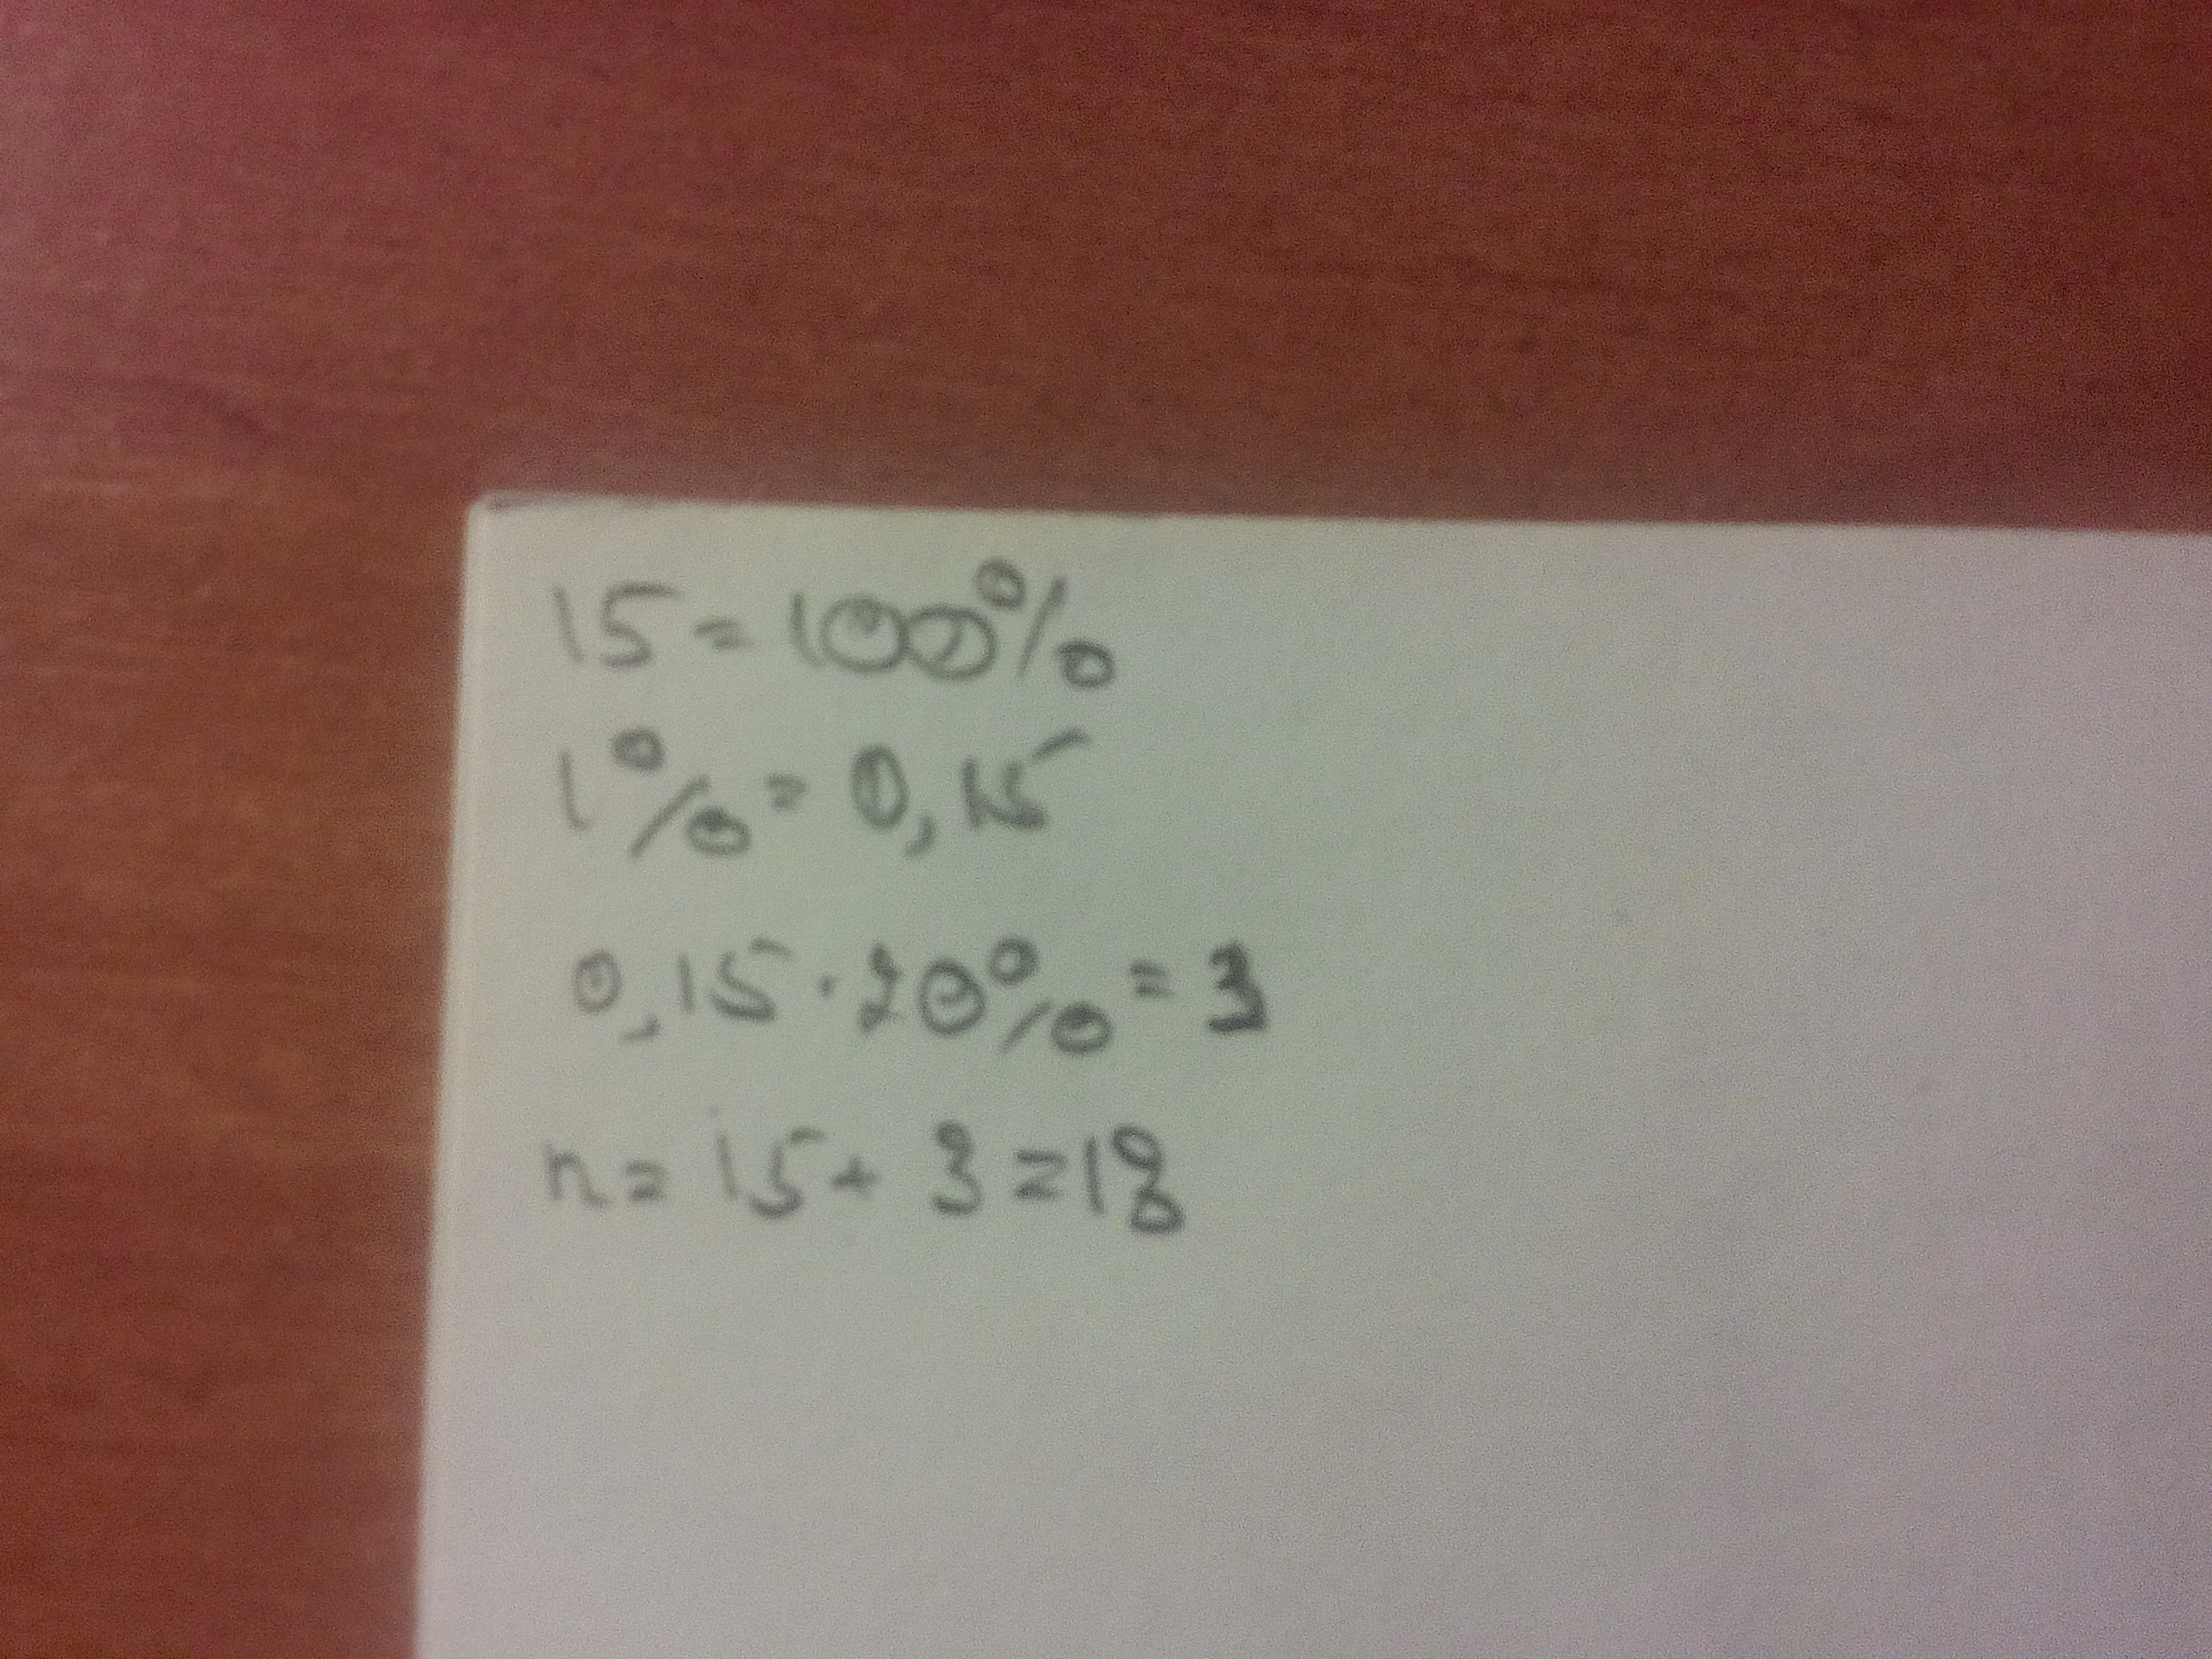 15 = 100%
1% = 0,15
0,15 · 20% = 3
n = 15 + 3 = 18